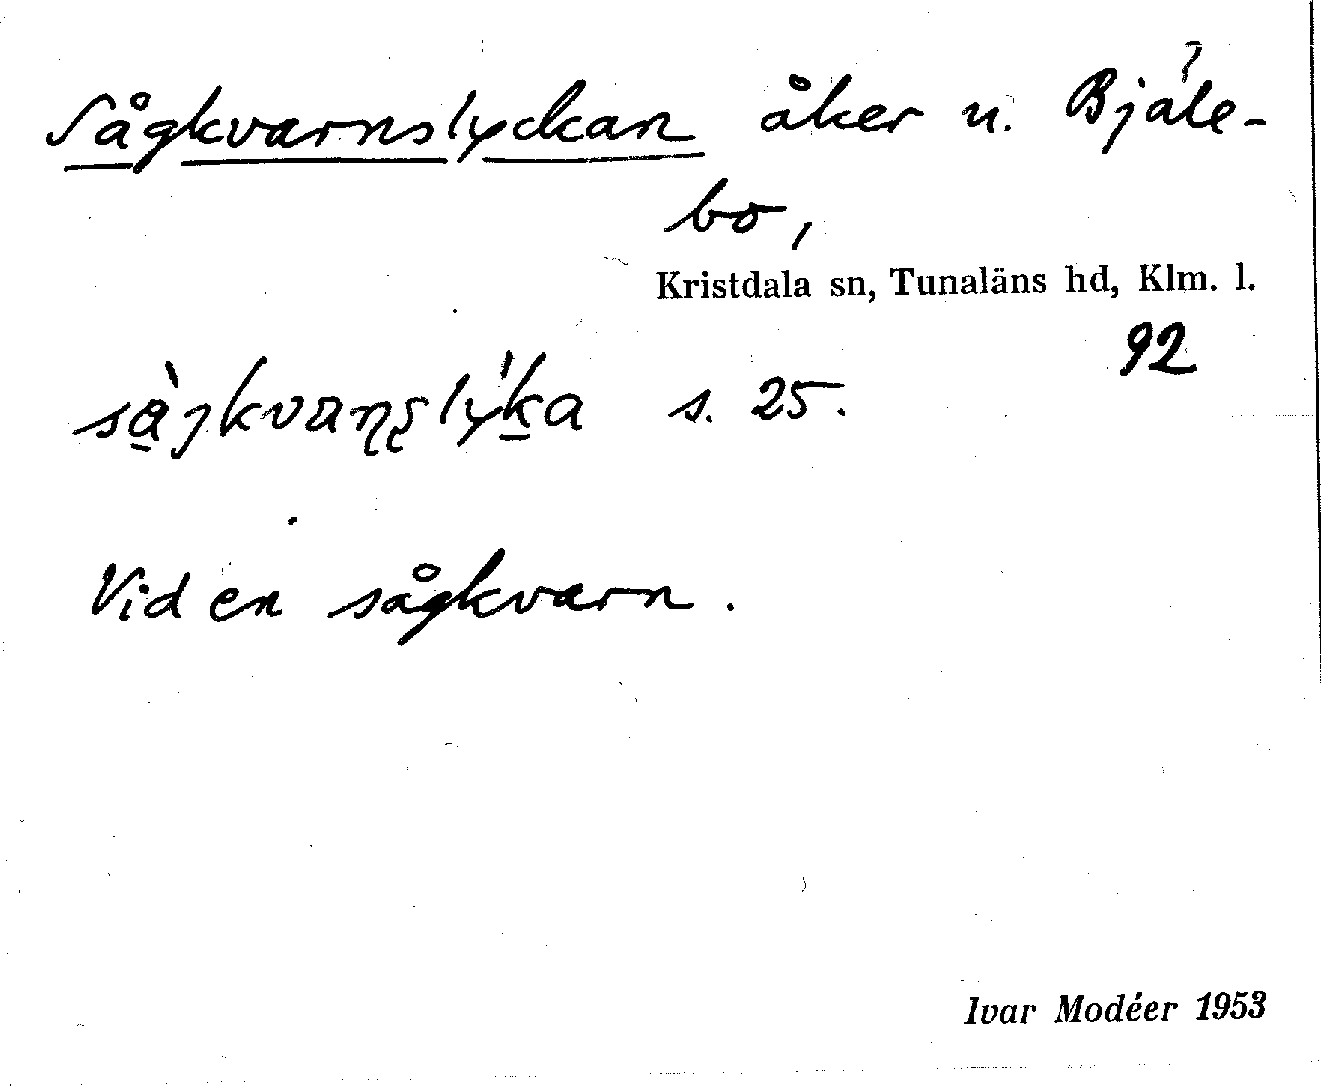 Sågkvarnslyckan åker u. Bjäle-
bo,
Kristdala sn, Tunaläns hd, Klm. l.
92
s. 25.
Vid en sågkvarn.
Ivar Modéer 1953